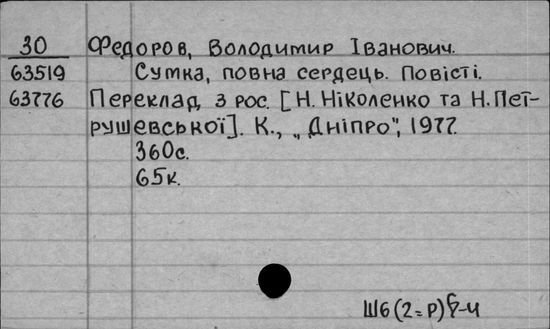 30 Федоров, Володимир Іванович.
63519 Сумка, повна сердець. Повісті.
63776 Переклад з рос. [Н. Ніколенко та Н. Пет-
рушевської]. К., „Дніпро", 1977.
360с.
65к.
Ш6(2=Р)